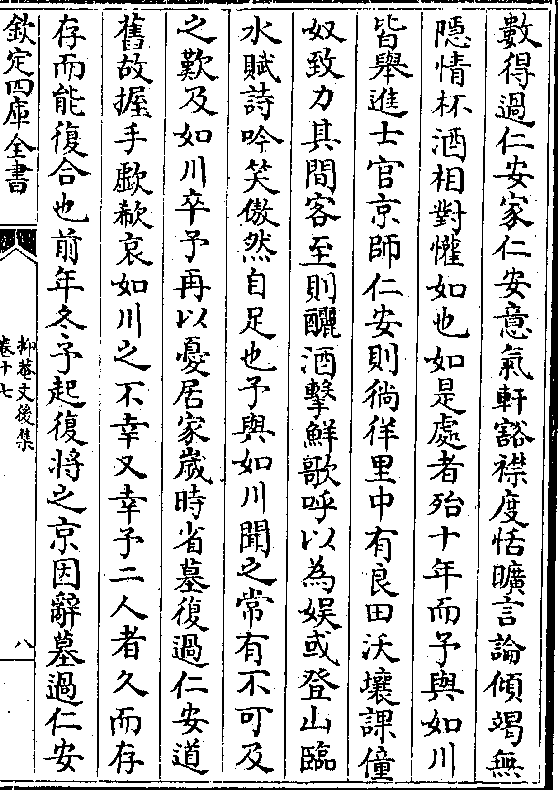 數得過仁安家仁安意氣軒豁襟度恬曠言論傾竭無
隠情杯酒相對懽如也如是處者殆十年而予與如川
皆舉進士官京師仁安則徜徉里中有良田沃壤課僮
奴致力其間客至則釃酒擊鮮歌呼以為娱或登山臨
水賦詩吟笑傲然自足也予與如川聞之常有不可及
之歎及如川卒予再以憂居家嵗時省墓復過仁安道
舊故握手歔欷哀如川之不幸又幸予二人者久而存
存而能復合也前年冬予起復將之京因辭墓過仁安
欽定四庫全書
抑菴文後集
卷十七
八